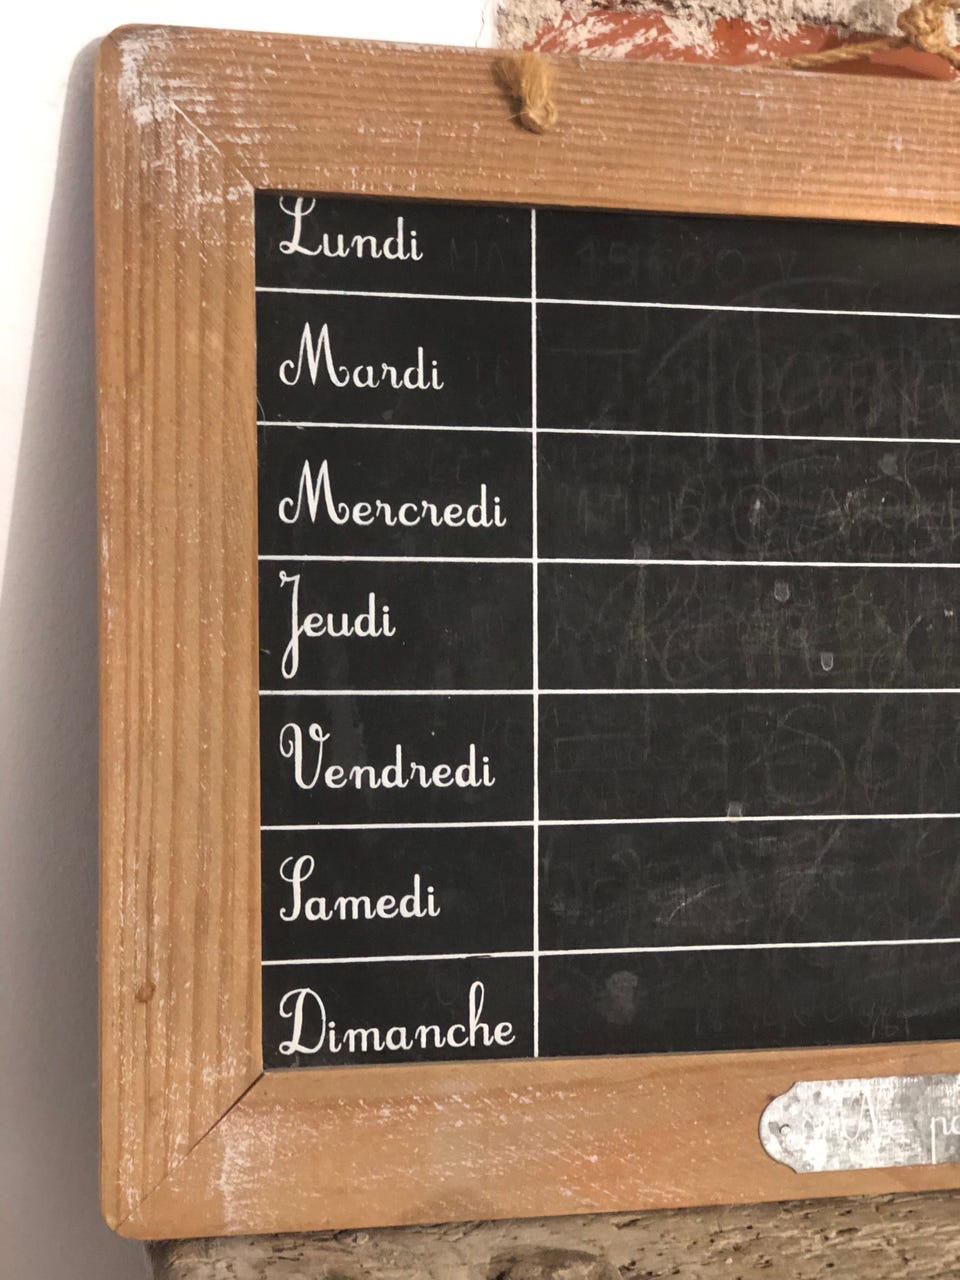 Lundi
Mardi
Mercredi
Jeudi
Vendredi
Samedi
Dimanche